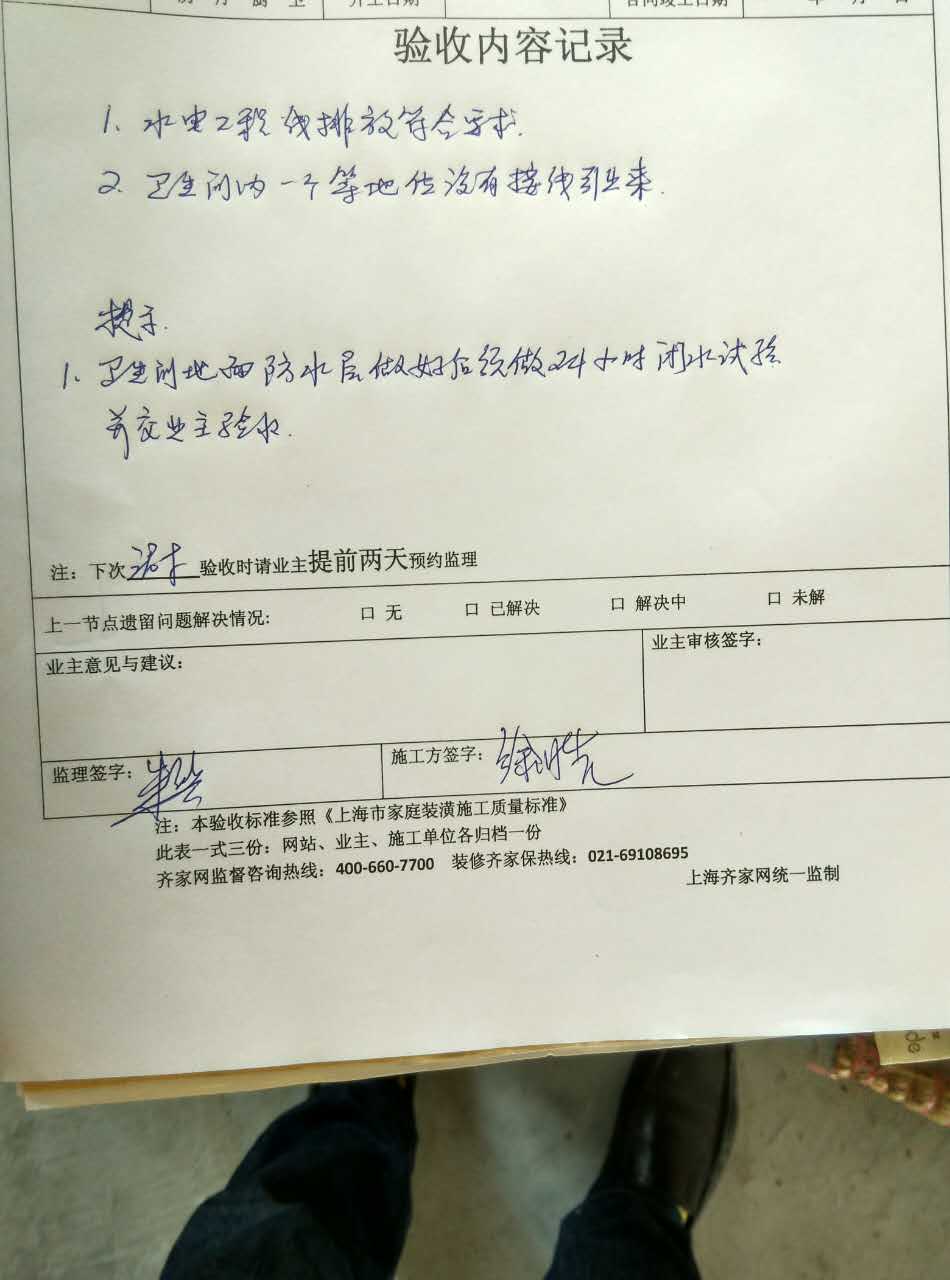 房 厅 厨 卫 开工日期 合同竣工日期 年 月 日
验收内容记录
1. 水电工程线排放符合要求.
2. 卫生间内一个等地位没有接线引出来.
提示.
1. 卫生间地面防水层做好后须做24小时闭水试验
并交业主验收.
注：下次泥木验收时请业主提前两天预约监理
上一节点遗留问题解决情况: 口 无 口 已解决 口 解决中 口 未解
业主意见与建议： 业主审核签字：
监理签字： 施工方签字：
注：本验收标准参照《上海市家庭装潢施工质量标准》
此表一式三份：网站、业主、施工单位各归档一份
齐家网监督咨询热线：400-660-7700 装修齐家保热线：021-69108695
上海齐家网统一监制
de